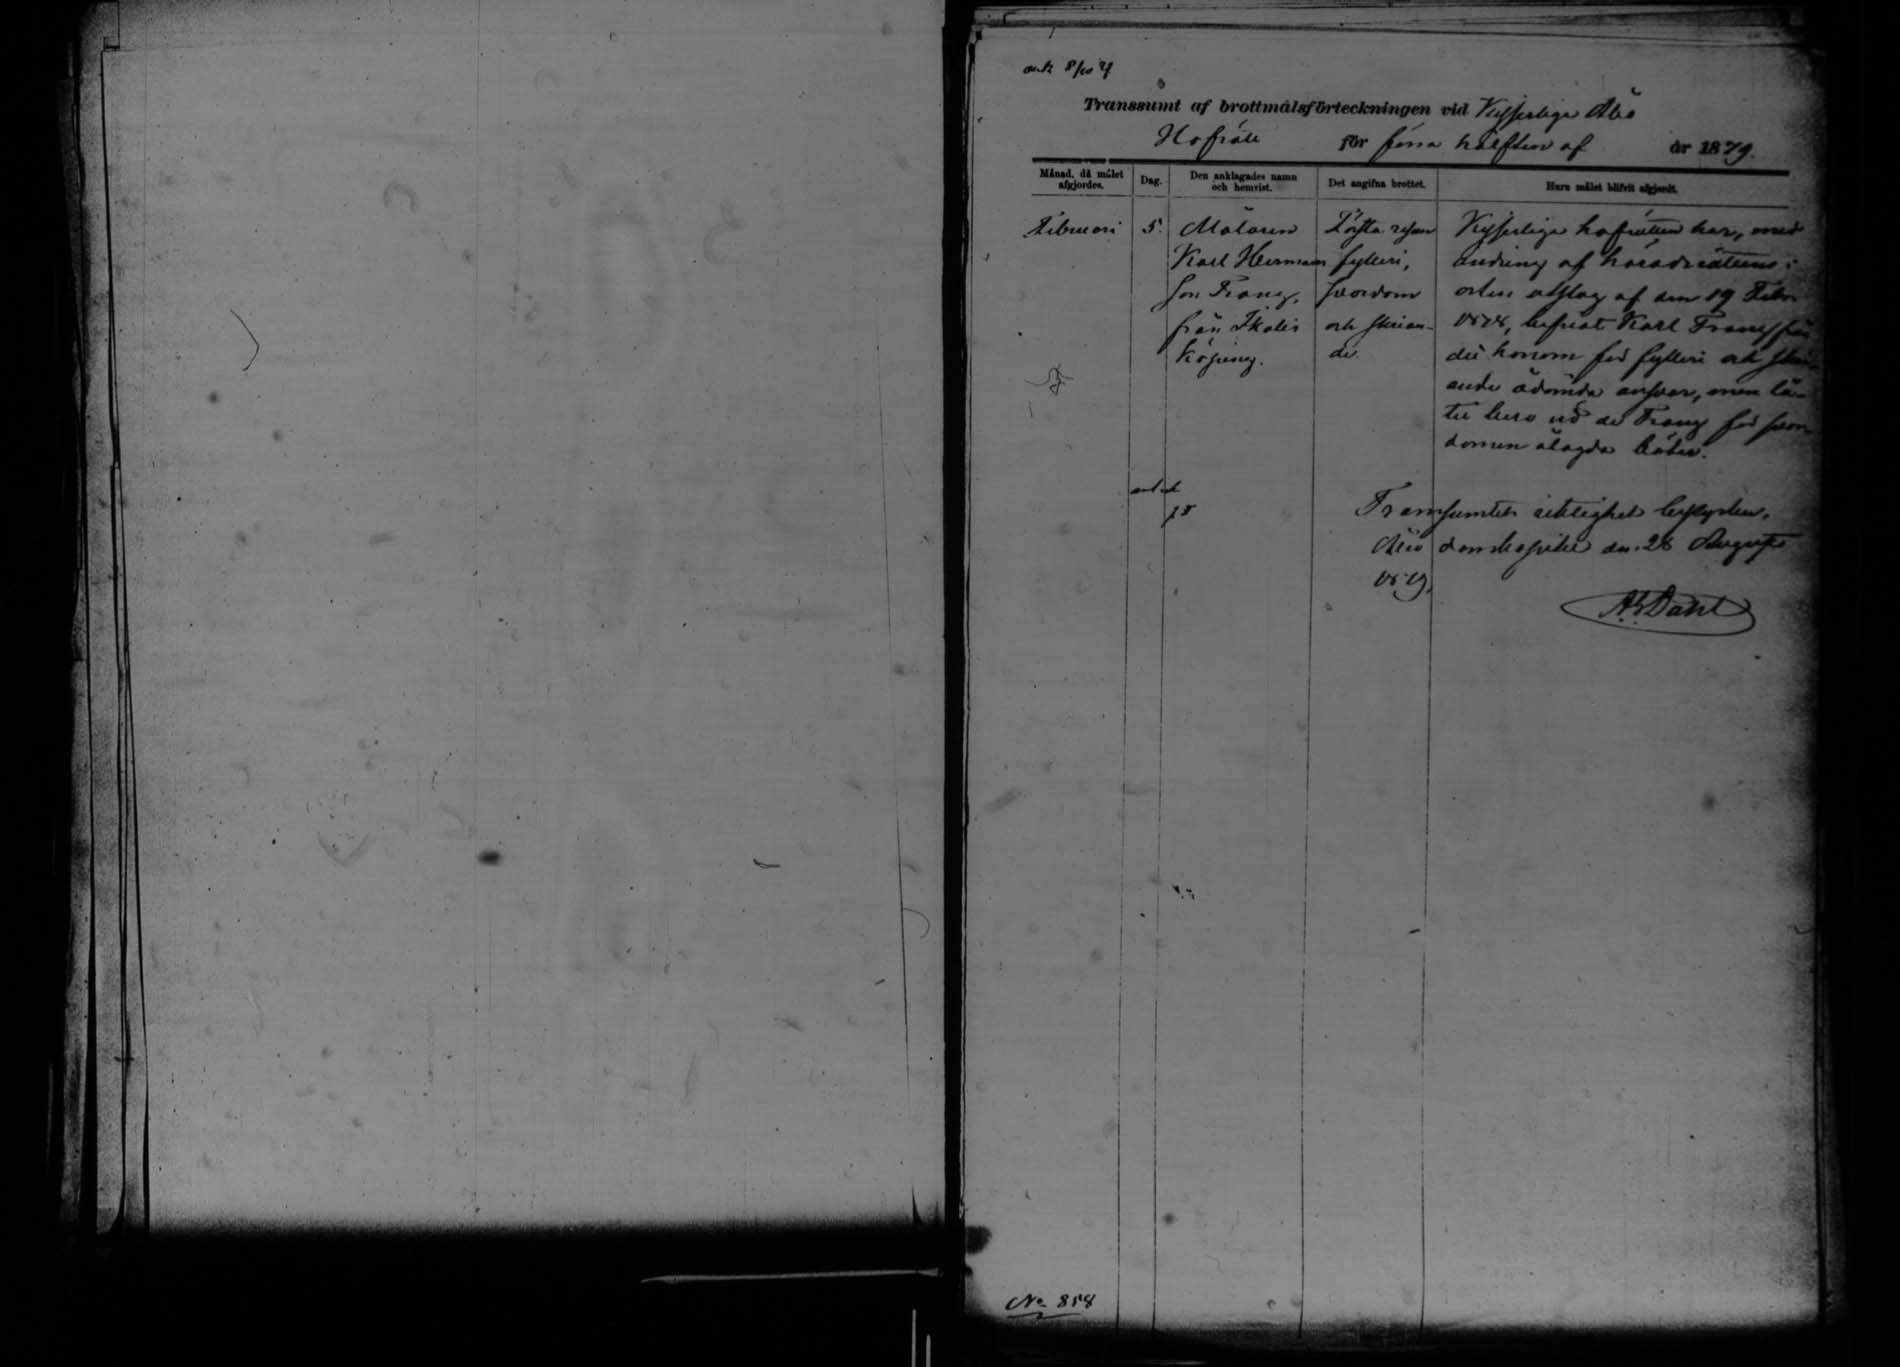 ank 8/10 79
Transsumt af brottmålsförteckningen vid Kejserliga Åbo
Hofrätt för förra hälften af år 1879.
Månad, då målet afgjordes.
Dag.
Den anklagades namn och hemvist.
Det angifna brottet.
Huru målet blifvit afgjordt.
Februari
5.
Målaren
Karl Herman
son Franz,
från Ikalis
köping.
Första resan
fylleri,
svordom
och skrian-
de
Kejserliga hofrätten har, med
ändring af häradsrättens i
orten utslag af den 19 Febr.
1878, befriat Karl Franz från
det honom för fylleri och skri-
ande ådömda ansvar, men lå-
tit bero vid de Franz för svor-
domen ålagda böter.
Transumtets riktighet bestyrker,
Åbo den 28 Augusti
1879.
Dahl
No 858